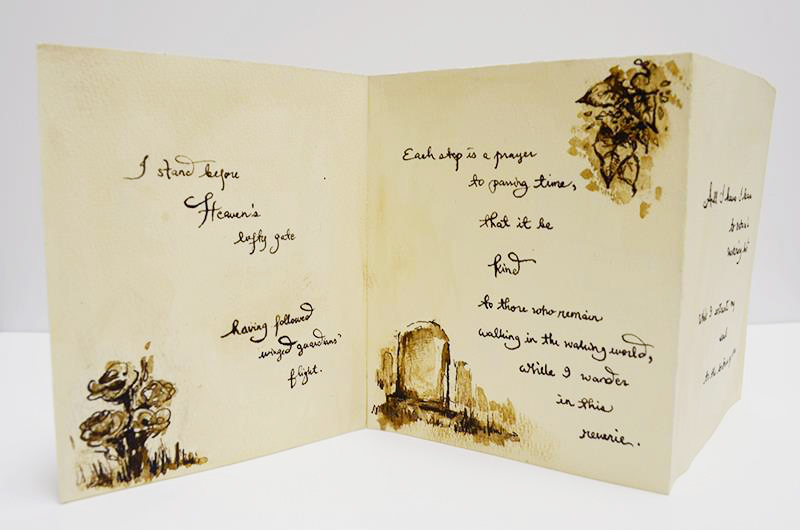 I stand before
Heaven's
lofty gate
having followed
winged guardians'
flight.
Each step is a prayer
to passing time,
that it be
kind
to those who remain
walking in the waking world,
while I wander
in this
reverie.
All I have I
to